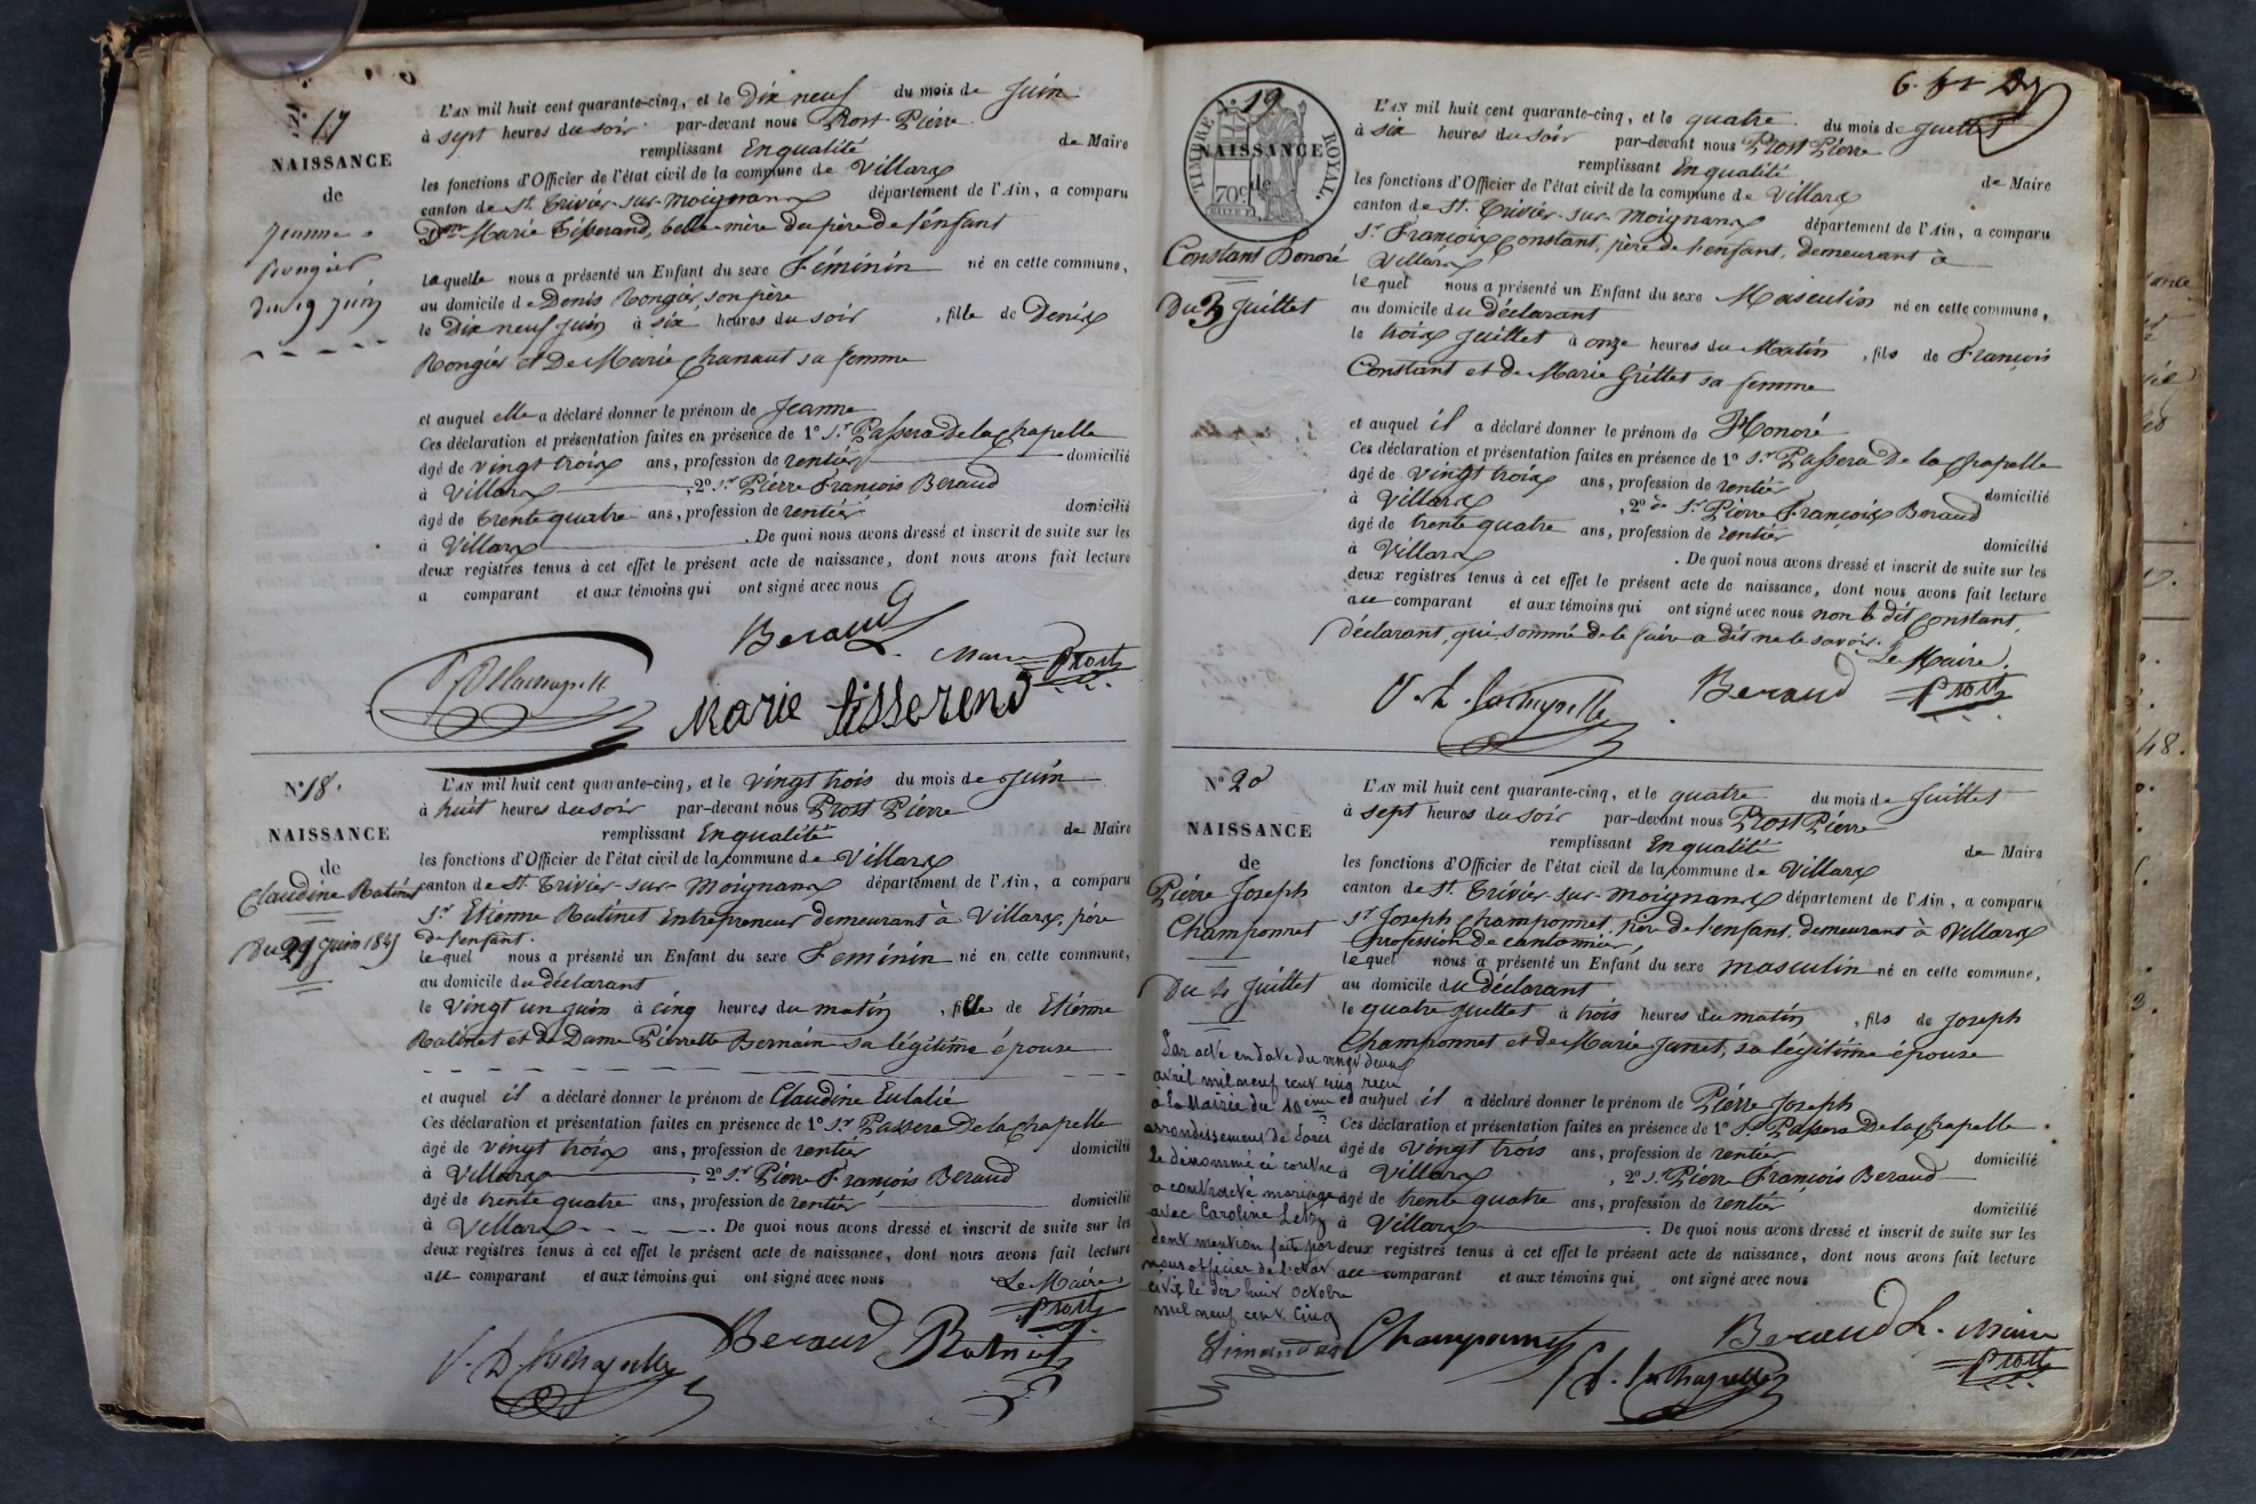 N° 17
NAISSANCE
de
Jeanne
Rongier
du 19 juin
L'AN mil huit cent quarante-cinq, et le Dix neuf du mois de Juin
à sept heures du soir par-devant nous Prost Pierre
remplissant En qualité de Maire
les fonctions d'Officier de l'état civil de la commune de Villars
canton de St. Trivier-sur-Moignans département de l'Ain, a comparu
Dme Marie Tisserand, belle-mère du père de l'enfant
laquelle nous a présenté un Enfant du sexe Féminin né en cette commune,
au domicile de Denis Rongier, son père
le Dix neuf juin à six heures du soir, fille de Denis
Rongier et De Marie Chanaut sa femme
et auquel elle a déclaré donner le prénom de Jeanne
Ces déclaration et présentation faites en présence de 1° Sr Passera De la Chapelle
âgé de vingt trois ans, profession de rentier domicilié
à Villars, 2° Sr Pierre François Beraud
âgé de trente quatre ans, profession de rentier domicilié
à Villars. De quoi nous avons dressé et inscrit de suite sur les
deux registres tenus à cet effet le présent acte de naissance, dont nous avons fait lecture
a comparant et aux témoins qui ont signé avec nous
Beraud
Prost
Marie tisserend
N° 18.
NAISSANCE
de
Claudine Ratinet
Du 21 Juin 1845
L'AN mil huit cent quarante-cinq, et le vingt trois du mois de Juin
à huit heures du soir par-devant nous Prost Pierre
remplissant En qualité de Maire
les fonctions d'Officier de l'état civil de la commune de Villars
canton de St. Trivier-sur-Moignans département de l'Ain, a comparu
Sr Etienne Ratinet Entrepreneur demeurant à Villars, père
de l'enfant.
lequel nous a présenté un Enfant du sexe Feminin né en cette commune,
au domicile du déclarant
le vingt un juin à cinq heures du matin, fille de Etienne
Ratinet et de Dame Pierrette Bernain sa légitime épouse
et auquel il a déclaré donner le prénom de Claudine Eulalie
Ces déclaration et présentation faites en présence de 1° Sr Passera De la Chapelle
âgé de vingt trois ans, profession de rentier domicilié
à Villars, 2° Sr Pierre François Beraud
âgé de trente quatre ans, profession de rentier domicilié
à Villars. De quoi nous avons dressé et inscrit de suite sur les
deux registres tenus à cet effet le présent acte de naissance, dont nous avons fait lecture
au comparant et aux témoins qui ont signé avec nous
Le Maire
Prost
Beraud Ratinet
6. et
N° 19
TIMBRE ROYAL.
70c
NAISSANCE
de
Constant Honoré
Du 3 Juillet
L'AN mil huit cent quarante-cinq, et le quatre du mois de Juillet
à six heures du soir par-devant nous Prost Pierre
remplissant En qualité de Maire
les fonctions d'Officier de l'état civil de la commune de Villars
canton de St. Trivier-sur-Moignans département de l'Ain, a comparu
Sr François Constant, père de l'enfant, demeurant à
Villars
lequel nous a présenté un Enfant du sexe Masculin né en cette commune,
au domicile du déclarant
le trois juillet à onze heures du Matin, fils de François
Constant et de Marie Grillet sa femme
et auquel il a déclaré donner le prénom de Honoré
Ces déclaration et présentation faites en présence de 1° Sr Passera De la Chapelle
âgé de vingt trois ans, profession de rentier domicilié
à Villars, 2° Sr Pierre François Beraud
âgé de trente quatre ans, profession de rentier domicilié
à Villars. De quoi nous avons dressé et inscrit de suite sur les
deux registres tenus à cet effet le présent acte de naissance, dont nous avons fait lecture
au comparant et aux témoins qui ont signé avec nous non le dit Constant,
déclarant, qui, sommé de le faire a dit ne le savoir.
Le Maire.
Beraud Prost
N° 20
NAISSANCE
de
Pierre Joseph
Champonnet
Du 4 Juillet
Par acte en date du vingt deux
avril mil neuf cent cinq recu
à la Mairie du 10ème
arrondissement de Paris
le dénommé ci contre
a contracté mariage
avec Caroline Letzy
dont mention faite par
nous officier de l'état
civil le dix huit octobre
mil neuf cent cinq
L'AN mil huit cent quarante-cinq, et le quatre du mois de Juillet
à sept heures du soir par-devant nous Prost Pierre
remplissant En qualité de Maire
les fonctions d'Officier de l'état civil de la commune de Villars
canton de St. Trivier-sur-Moignans département de l'Ain, a comparu
Sr Joseph Champonnet, père de l'enfant, demeurant à Villars
profession de cantonnier,
lequel nous a présenté un Enfant du sexe masculin né en cette commune,
au domicile du déclarant
le quatre juillet à trois heures du matin, fils de Joseph
Champonnet et de Marie Janet, sa légitime épouse
et auquel il a déclaré donner le prénom de Pierre Joseph
Ces déclaration et présentation faites en présence de 1° Sr Passera De la Chapelle
âgé de vingt trois ans, profession de rentier domicilié
à Villars, 2° Sr Pierre François Beraud
âgé de trente quatre ans, profession de rentier domicilié
à Villars. De quoi nous avons dressé et inscrit de suite sur les
deux registres tenus à cet effet le présent acte de naissance, dont nous avons fait lecture
au comparant et aux témoins qui ont signé avec nous
Champonnet Beraud
Prost